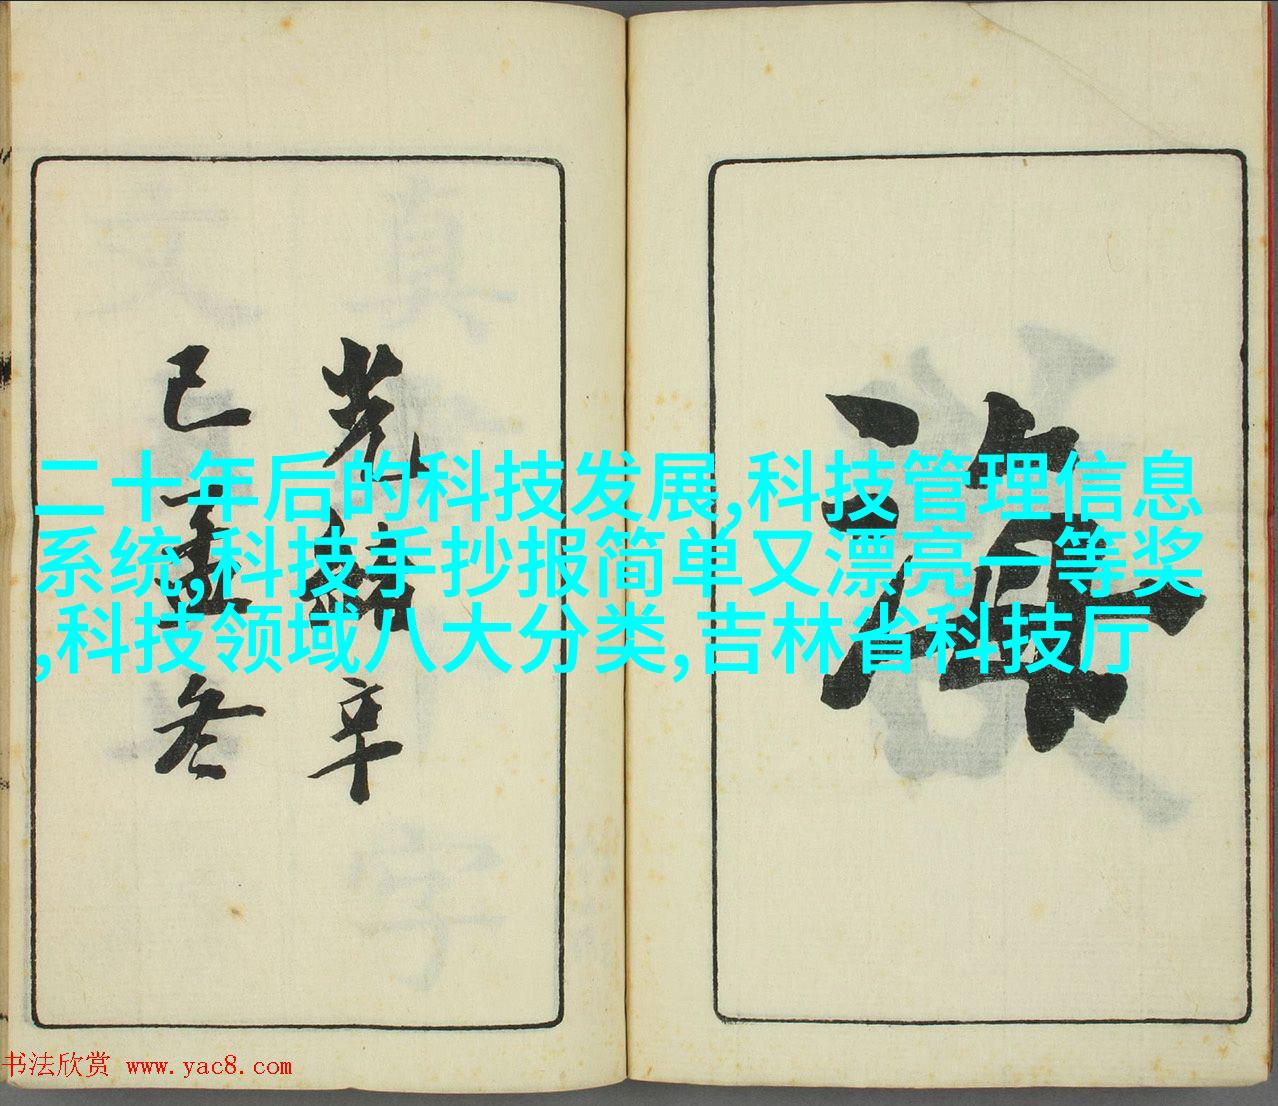 二十年后的科技发展,科技管理信息
系统,科技手抄报简单又漂亮一等奖
,科技领域八大分类,吉林省科技厅
光緒辛
巳孟冬
书法欣赏 www.yac8.com